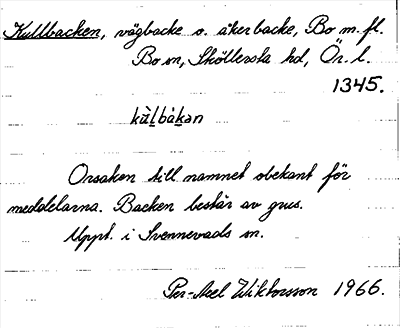 Kullbacken, vägbacke o. åkerbacke, Bo m. fl.
Bo sn, Sköllersta hd, Ör. l.
1345.
kùlbàkan
Orsaken till namnet obekant för
meddelarna. Backen består av grus.
Uppt. i Svennevads sn.
Per-Axel Wiktorsson 1966.